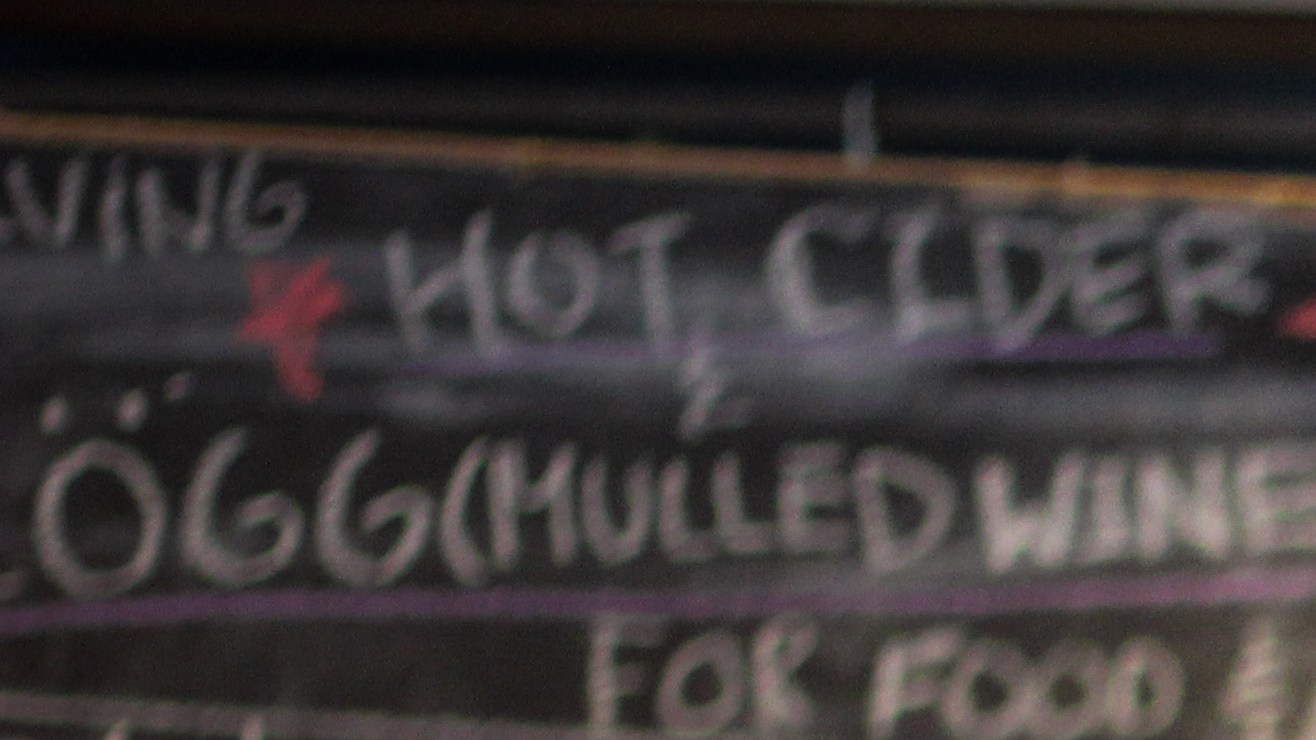 VING
HOT CIDER
&
ÖGG (MULLED WINE
FOR FOOD &